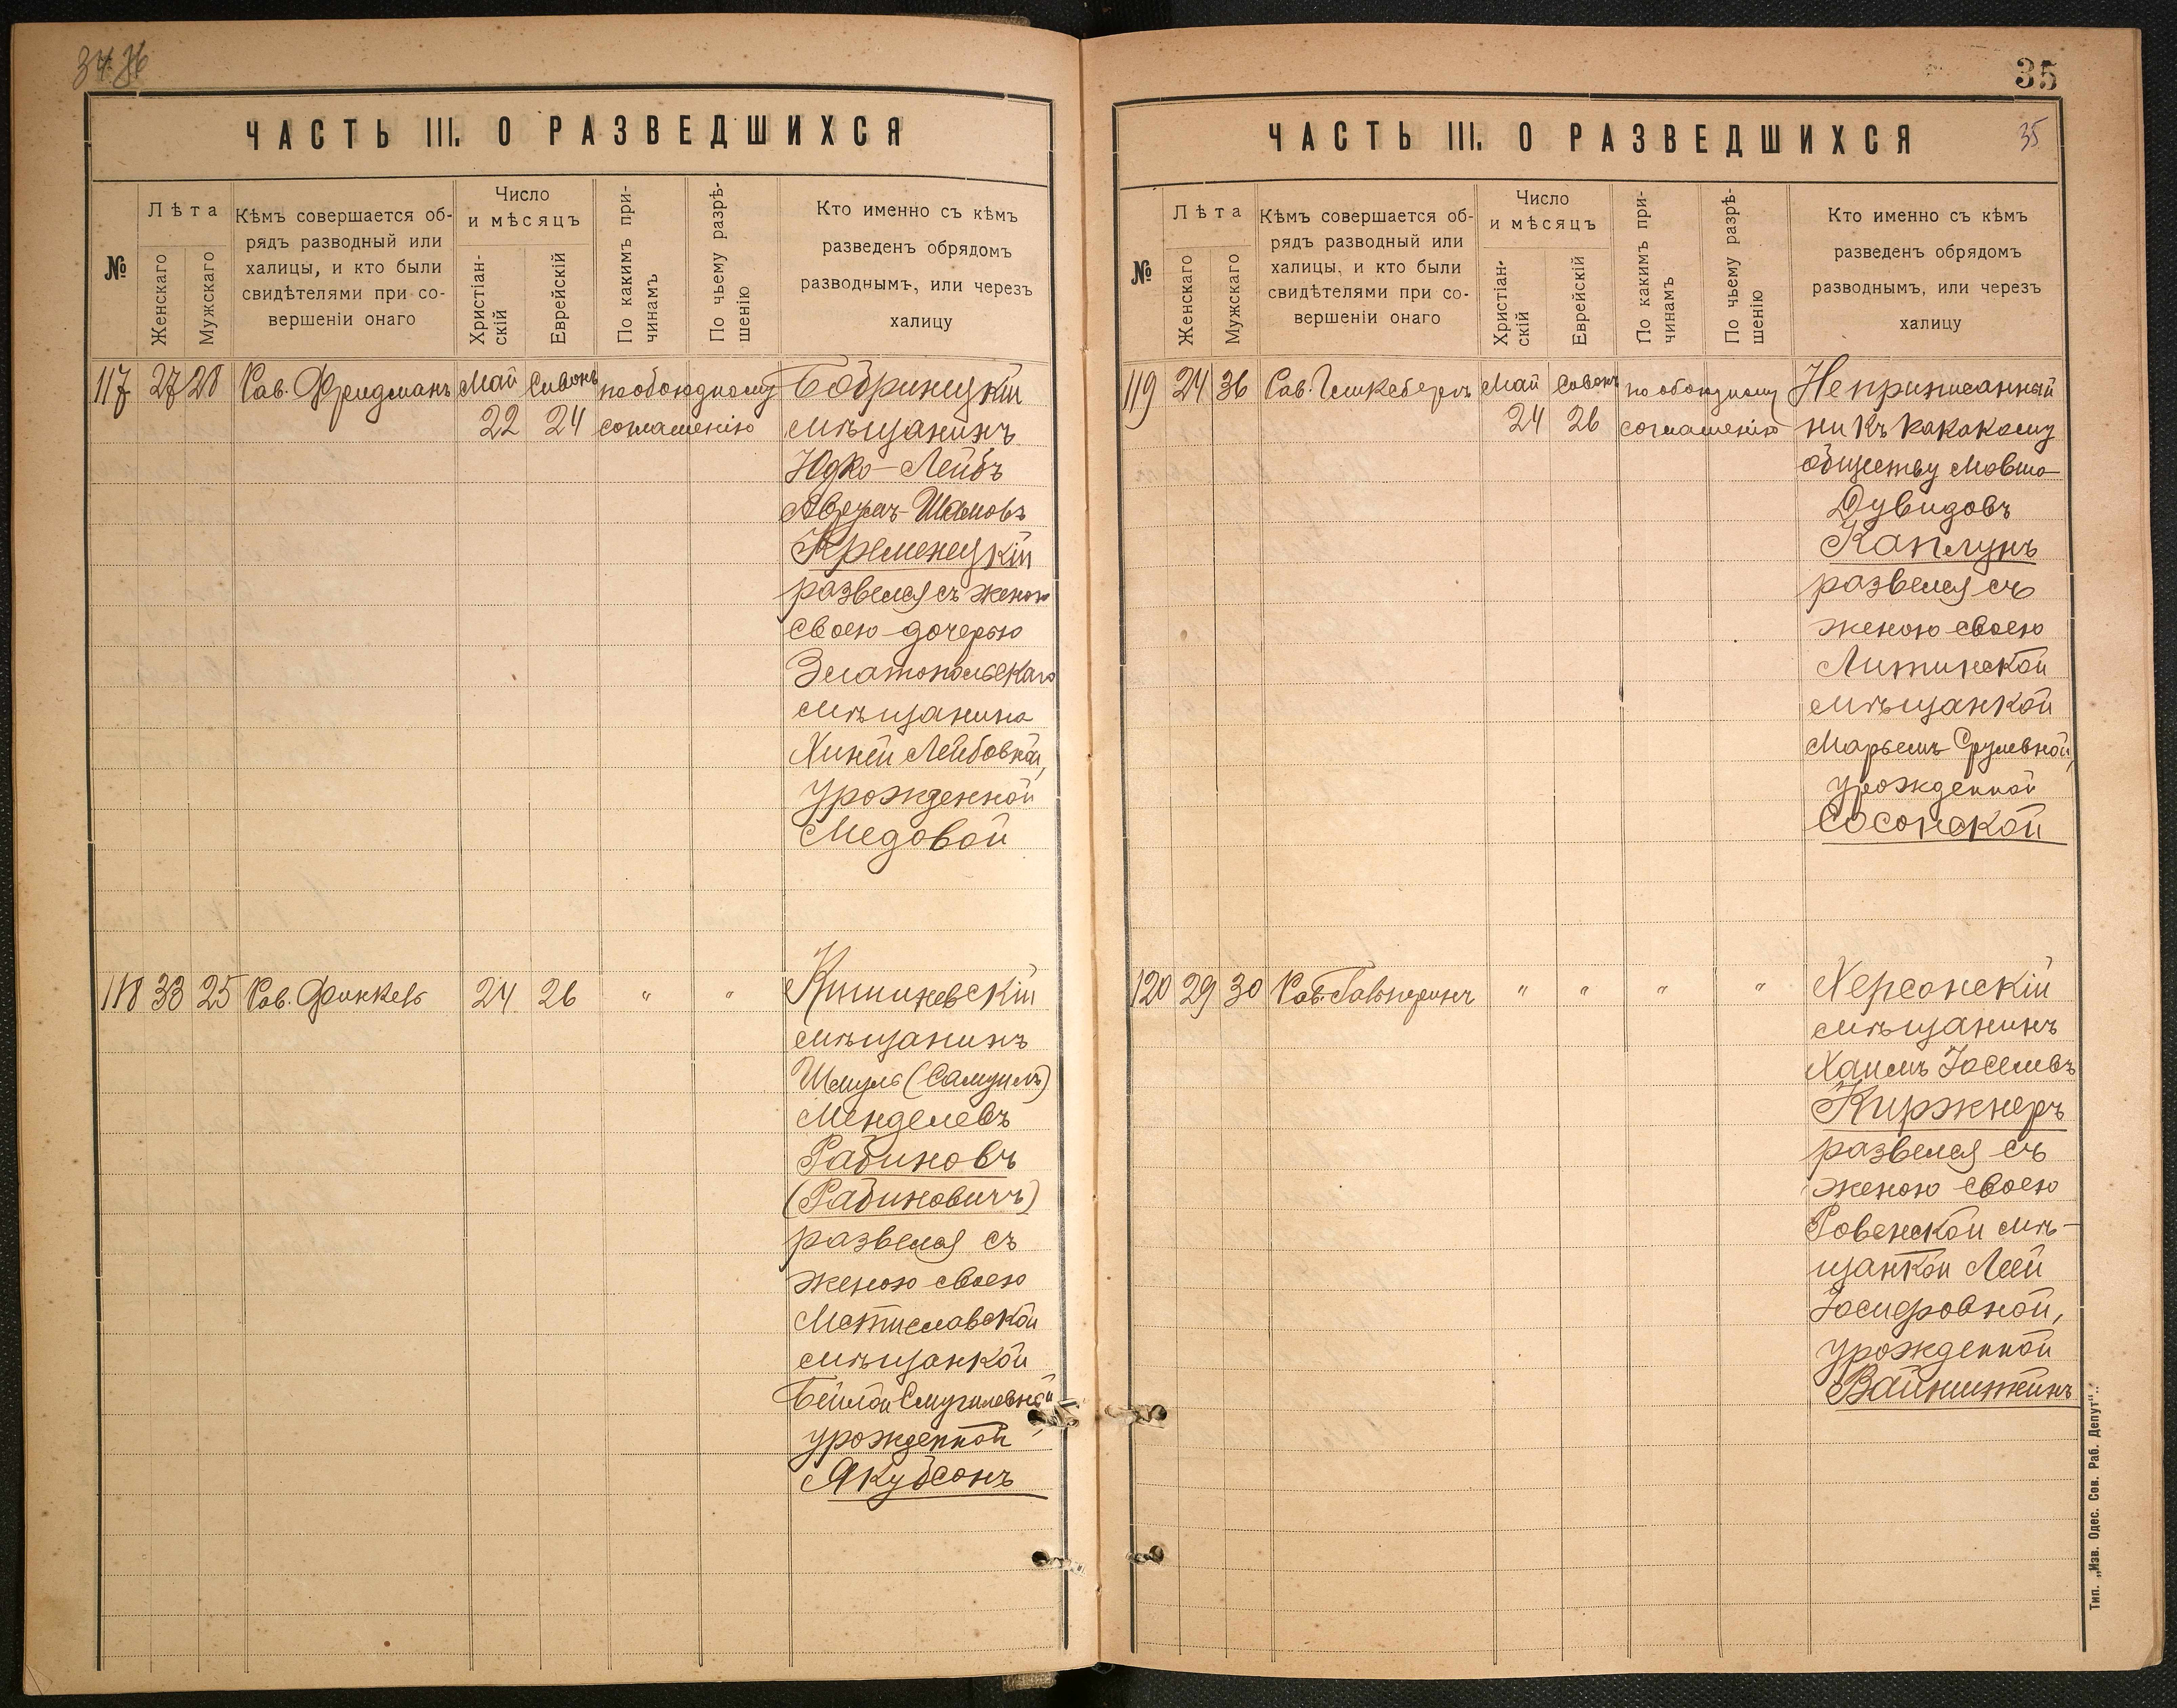 35
ЧАСТЬ III. О РАЗВЕДШИХСЯ
№
Лѣта
Женскаго
Мужскаго
Кѣмъ совершается об-
рядъ разводный или
халицы, и кто были
свидѣтелями при со-
вершеніи онаго
Число
и мѣсяцъ
Христіан-
скій
Еврейскій
По какимъ при-
чинамъ
По чьему разрѣ-
шенію
Кто именно съ кѣмъ
разведенъ обрядомъ
разводнымъ, или черезъ
халицу
117 27 28 Рав. Фридманъ Май Сивонъ по обоюдному Бобринецкій
22 24 соглашенію мѣщанинъ
Юдко-Лейбъ
Кременецкій
развелся съ женою
своею дочерью
Златопольскаго
мѣщанина
Хиней Лейбовной,
урожденной
Медовой
118 33 25 Рав. Финкель 24 26 " " Кишиневскій
мѣщанинъ
Шмуль (Самуилъ)
Менделевъ
Рабиновъ
(Рабиновичъ)
развелся съ
женою своею
Мстиславской
мѣщанкой
Бейлой
урожденной
Якубсонъ
ЧАСТЬ III. О РАЗВЕДШИХСЯ
35
№
Лѣта
Женскаго
Мужскаго
Кѣмъ совершается об-
рядъ разводный или
халицы, и кто были
свидѣтелями при со-
вершеніи онаго
Число
и мѣсяцъ
Христіан-
скій
Еврейскій
По какимъ при-
чинамъ
По чьему разрѣ-
шенію
Кто именно съ кѣмъ
разведенъ обрядомъ
разводнымъ, или черезъ
халицу
119 24 36 Рав. Май Сивонъ по обоюдному Неприписанный
24 26 соглашенію ни къ какакому
обществу Мовша-
Дувидовъ
Каплунъ
развелся съ
женою своею
Литинской
мѣщанкой
Марьемъ Срулевной,
урожденной
Сосонской
120 29 30 Рав. Гальперинъ " " " " Херсонскій
мѣщанинъ
Хаимъ Іоселевъ
Киржнеръ
развелся съ
женою своею
Ровенской мѣ-
щанкой Леей
Іосифовной,
урожденной
Тип. „Изв. Одес. Сов. Раб. Депут“.